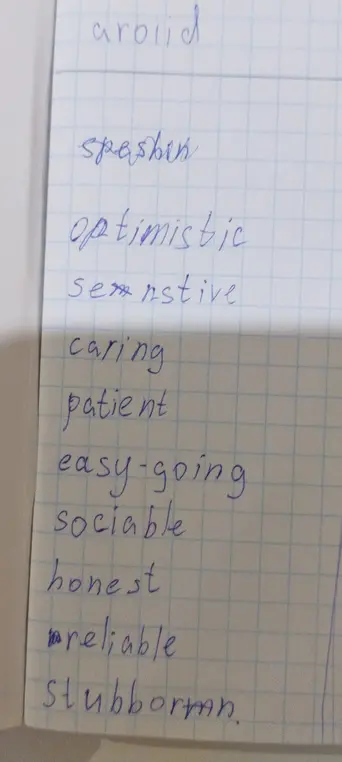 avoid
optimistic
senstive
caring
patient
easy-going
sociable
honest
reliable
stubborn.